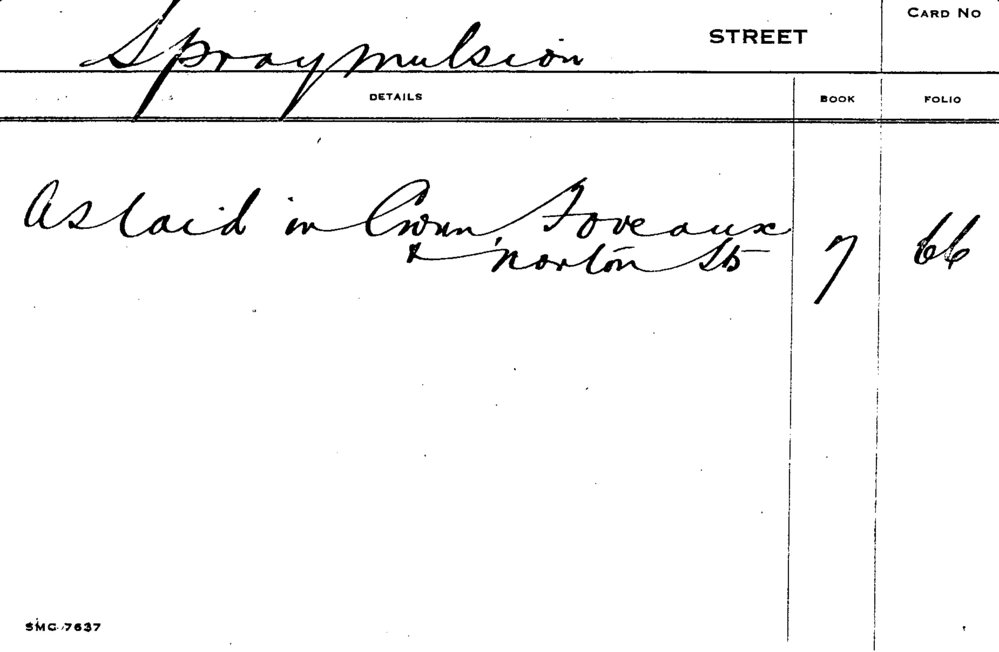 Spraymulsion STREET CARD NO
DETAILS BOOK FOLIO
As laid in Crown, Foveaux
& Norton Sts 7 66
SMC 7637